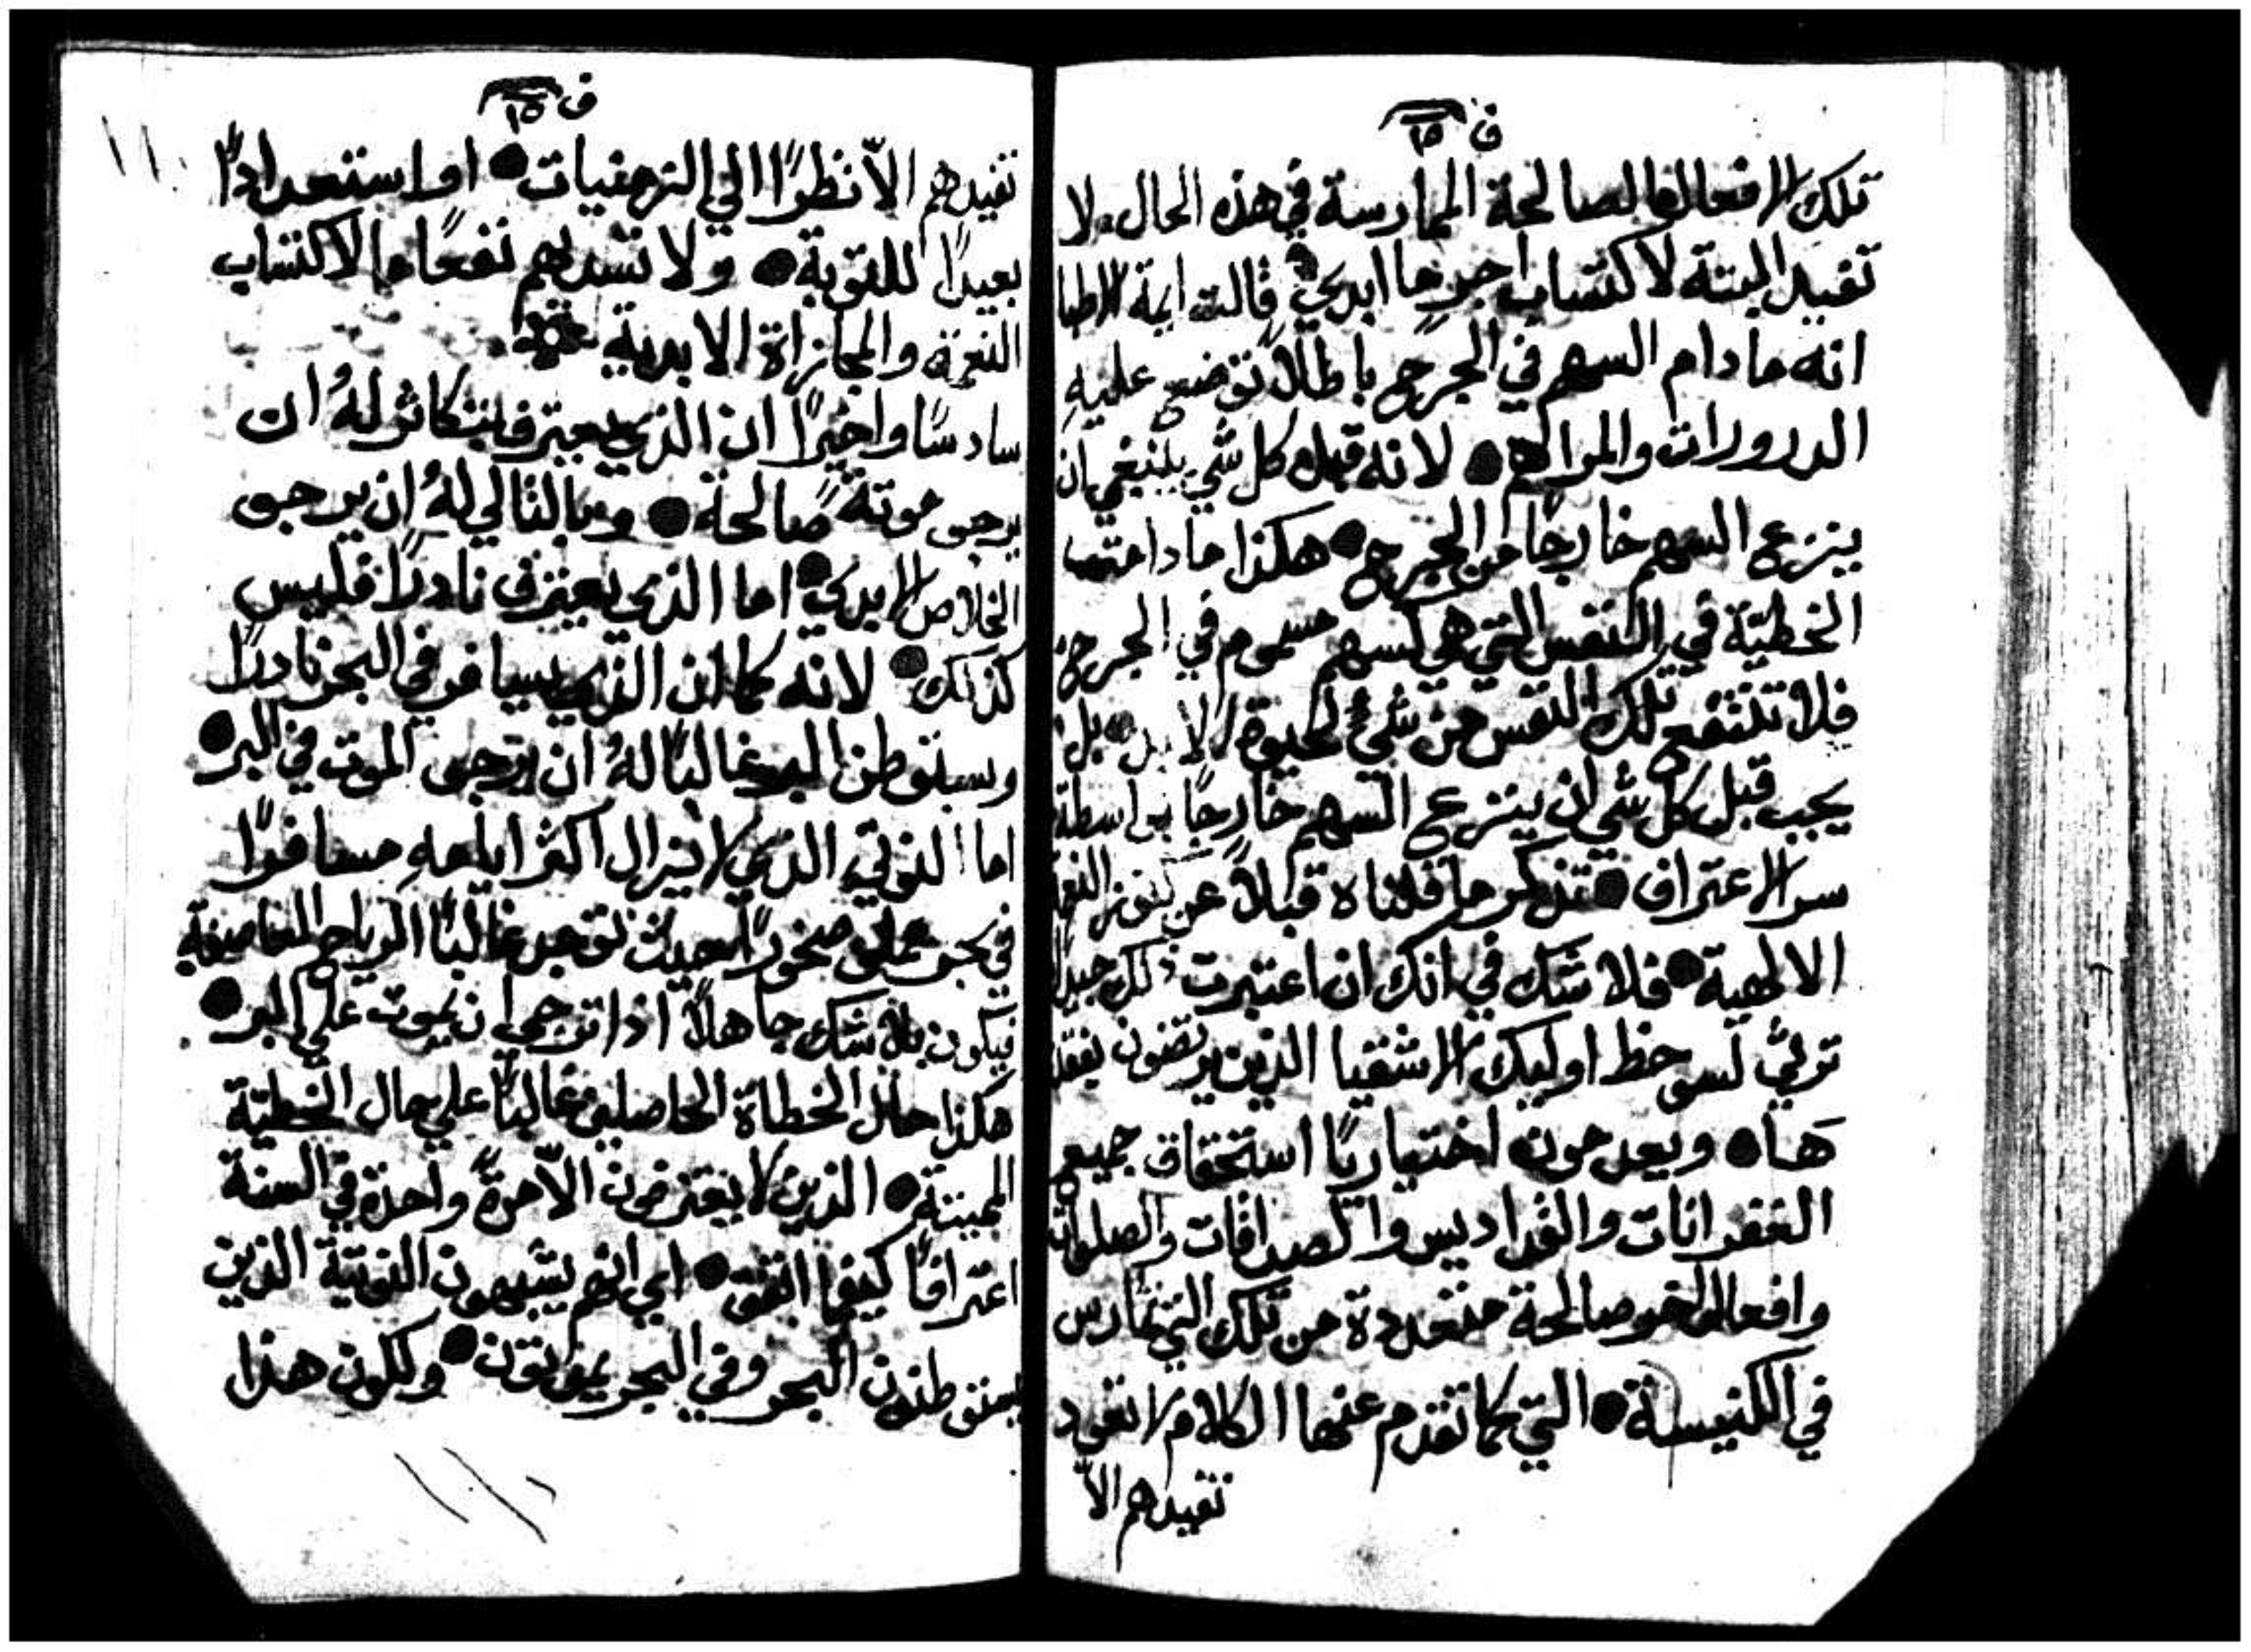 ف ١٥
تلك الافعال الصالحة الممارسة في هذه الحال. لا
تفيد البتة لاكتساب اجرٍ ما ابدي ● قالت ايمة الاطبا
انه ما دام السهم في الجرح باطلاً توضع عليهِ
الدرورات والمراهم ● لانه قبل كل شي ينبغي ان
ينزع السهم خارجًا من الجرح ● هكذا ما دامت
الخطيّة في النفس التي هي كسهم مسموم في الجرح
فلا تنتفع تلك النفس من شيٍ لحيوة الابد ● بل
يجب قبل كل شي ان ينزع السهم خارجًا بواسطة
سر الاعتراف ● تذكر ما قلناه قبلاً عن كنوز النعمة
الالهية ● فلا شك في انك ان اعتبرت ذلك جيدًا
ترثي لسو حظ اوليك الاشقيا الذين يرتضون بفقد
ها ● ويعدمون اختياريًا استحقاق جميع
الغفرانات والقداديس والصداقات والصلوات
وافعال اخر صالحة متعددة من تلك التي تمارس
في الكنيسة ● التي كما تقدم عنها الكلام لا تفود
تفيدهم الاّ
ف ١٥
تفيدهم الاّ نظرًا الي الزمنيات ● او استعدادًا
بعيدًا للتوبة ● ولا تسديهم نفعًا ما لاكتساب
النعمة والمجازاة الابدية
سادسًا واخيرًا ان الذي يعترف بتكاثر لهُ ان
يرجى موتةً صالحة ● وبالتالي لهُ ان يرجى
الخلاص الابدي ● اما الذي يعترف نادرًا فليس
كذلك ● لانه كما ان الذي يسافر في البحر نادرًا
وسيتوطن البر غالبًا لهُ ان يترجى الموت في البر ●
اما النوتي الذي لا يزال اكثر ايامهِ مسافرًا
في بحر مملو صخورًا حيث توجد غالبًا الرياح العاصفة
فيكون بلا شك جاهلاً اذا ترجى ان يموت علي البر ●
هكذا حال الخطاة الحاصلين غالبًا علي حال الخطيّة
المميتة ● الذين لا يعترفون الاّ مرةً واحدة في السنة
اعترافًا كيفما اتفق ● اي انهم يشبهون النوتية الذين
يستوطنون البحر وفي البحر يموتون ● ولكون هذا